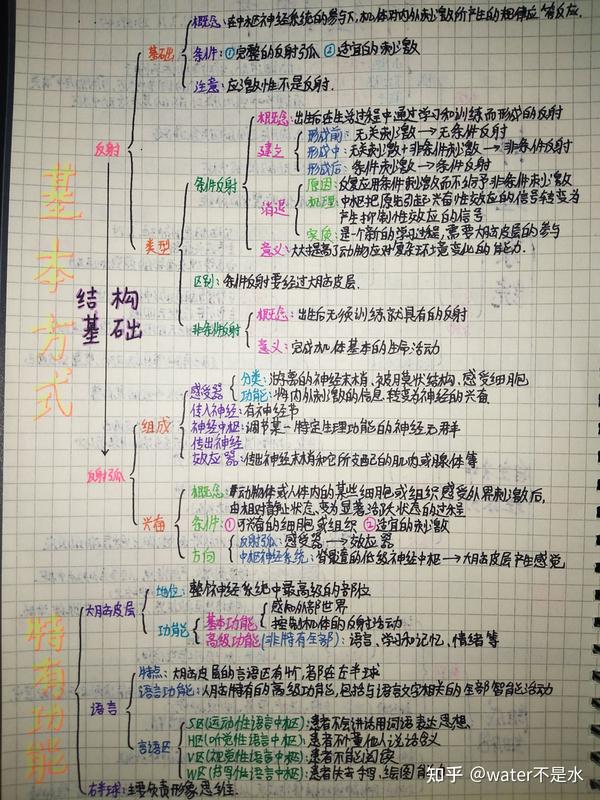 概念：在中枢神经系统的参与下，机体对内外刺激所产生的规律应答反应.
基础
条件：①完整的反射弧 ②适宜的刺激
注意：应激性不是反射.
反射
概念：出生后在生活过程中通过学习和训练而形成的反射
形成前：无关刺激→无条件反射
建立
形成中：无关刺激+非条件刺激→非条件反射
形成后：条件刺激→条件反射
条件反射
原因：反复应用条件刺激而不给予非条件刺激
消退
机理：中枢把原先引起兴奋性效应的信号转变为
产生抑制性效应的信号
实质：是一个新的学习过程，需要大脑皮层的参与
类型
意义：大大提高了动物应对复杂环境变化的能力.
区别：条件反射要经过大脑皮层.
非条件反射
概念：出生后无须训练就具有的反射
意义：完成机体基本的生命活动
基本方式
结构
基础
反射弧
组成
感受器
分类：游离的神经末梢、被膜状结构、感受细胞
功能：将内外刺激的信息转变为神经的兴奋
传入神经：有神经节
神经中枢：调节某一特定生理功能的神经元群
传出神经
效应器：传出神经末梢和它所支配的肌肉或腺体等
兴奋
概念：指动物体或人体内的某些细胞或组织感受外界刺激后，
由相对静止状态变为显著活跃状态的过程
条件：①可兴奋的细胞或组织 ②适宜的刺激
方向
反射弧：感受器→效应器
中枢神经系统：脊髓的低级神经中枢→大脑皮层产生感觉
特有功能
大脑皮层
地位：整个神经系统中最高级的部位
功能
基本功能
感知外部世界
控制机体的反射活动
高级功能(非特有全部)：语言、学习和记忆、情绪等
语言
特点：大脑皮层的言语区有4个，都在左半球
语言功能：人脑特有的高级功能，包括与语言文字相关的全部智能活动
言语区
S区(运动性语言中枢)：患者不会讲话用词语表达思想
H区(听觉性语言中枢)：患者不懂他人说话含义
V区(视觉性语言中枢)：患者不能阅读
W区(书写性语言中枢)：患者失去书写、绘图能力
右半球：主要负责形象思维.
知乎 @water不是水